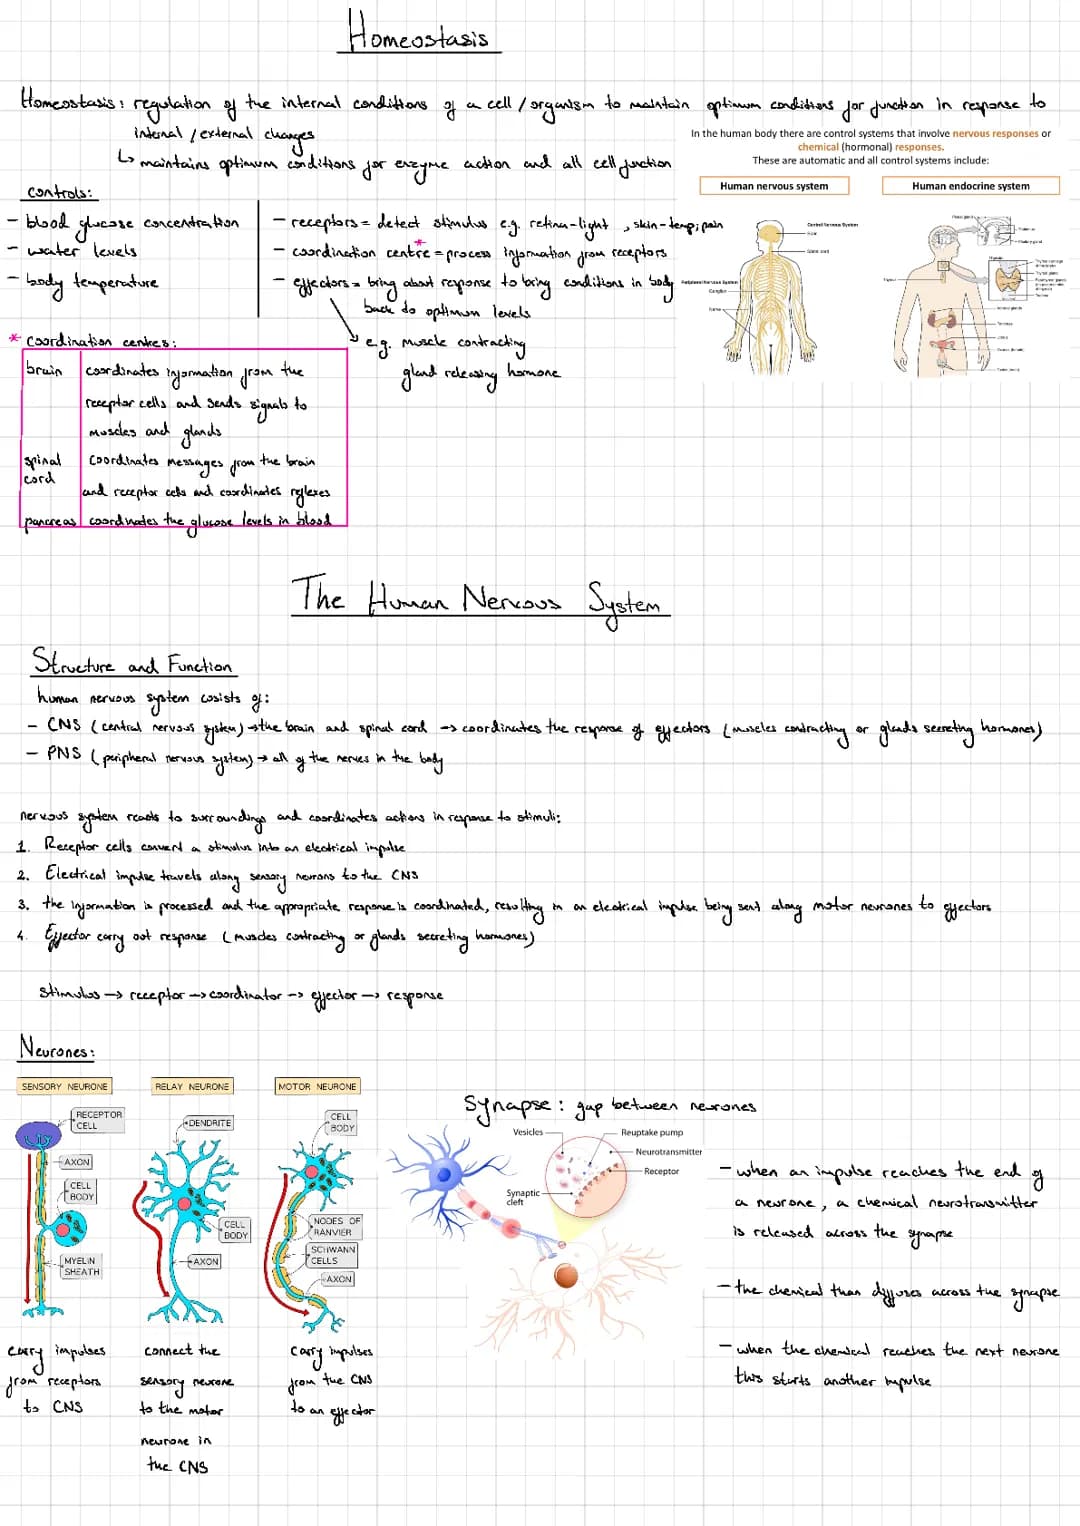 Homeostasis
Homeostasis: regulation of the internal conditions of a cell / organism to maintain optimum conditions for function in response to
internal / external changes
↳ maintains optimum conditions for enzyme action and all cell function
In the human body there are control systems that involve nervous responses or
chemical (hormonal) responses.
These are automatic and all control systems include:
Human nervous system
Human endocrine system
controls:
- blood glucose concentration
- water levels
- body temperature
- receptors = detect stimulus e.g. retina-light, skin-temp; pain
- coordination centre* = process information from receptors
- effectors = bring about response to bring conditions in body
back do optimum levels
e.g. muscle contracting
gland releasing hormone
Central Nervous System
Peripheral Nervous System
* coordination centres:
brain coordinates information from the
receptor cells and sends signals to
muscles and glands
spinal cord coordinates messages from the brain
and receptor cells and coordinates reflexes
pancreas coordinates the glucose levels in blood
The Human Nervous System
Structure and Function
human nervous system cosists of:
- CNS (central nervous system) → the brain and spinal cord → coordinates the response of effectors (muscles contracting or glands secreting hormones)
- PNS (peripheral nervous system) → all of the nerves in the body
nervous system reacts to surroundings and coordinates actions in response to stimuli:
1. Receptor cells convert a stimulus into an electrical impulse
2. Electrical impulse travels along sensory neurons to the CNS
3. the information is processed and the appropriate response is coordinated, resulting in an electrical impulse being sent along motor neurones to effectors
4. Effector carry out response (muscles contracting or glands secreting hormones)
stimulus → receptor → coordinator → effector → response
Neurones:
SENSORY NEURONE
RECEPTOR
CELL
AXON
CELL
BODY
MYELIN
SHEATH
carry impulses
from receptors
to CNS
RELAY NEURONE
DENDRITE
CELL
BODY
AXON
connect the
sensory neurone
to the motor
neurone in
the CNS
MOTOR NEURONE
CELL
BODY
NODES OF
RANVIER
SCHWANN
CELLS
AXON
carry impulses
from the CNS
to an effector
Synapse: gap between neurones
Vesicles
Reuptake pump
Neurotransmitter
Receptor
Synaptic
cleft
- when an impulse reaches the end of
a neurone, a chemical neurotransmitter
is released across the synapse
- the chemical than diffuses across the synapse
- when the chemical reaches the next neurone
this sturts another impulse